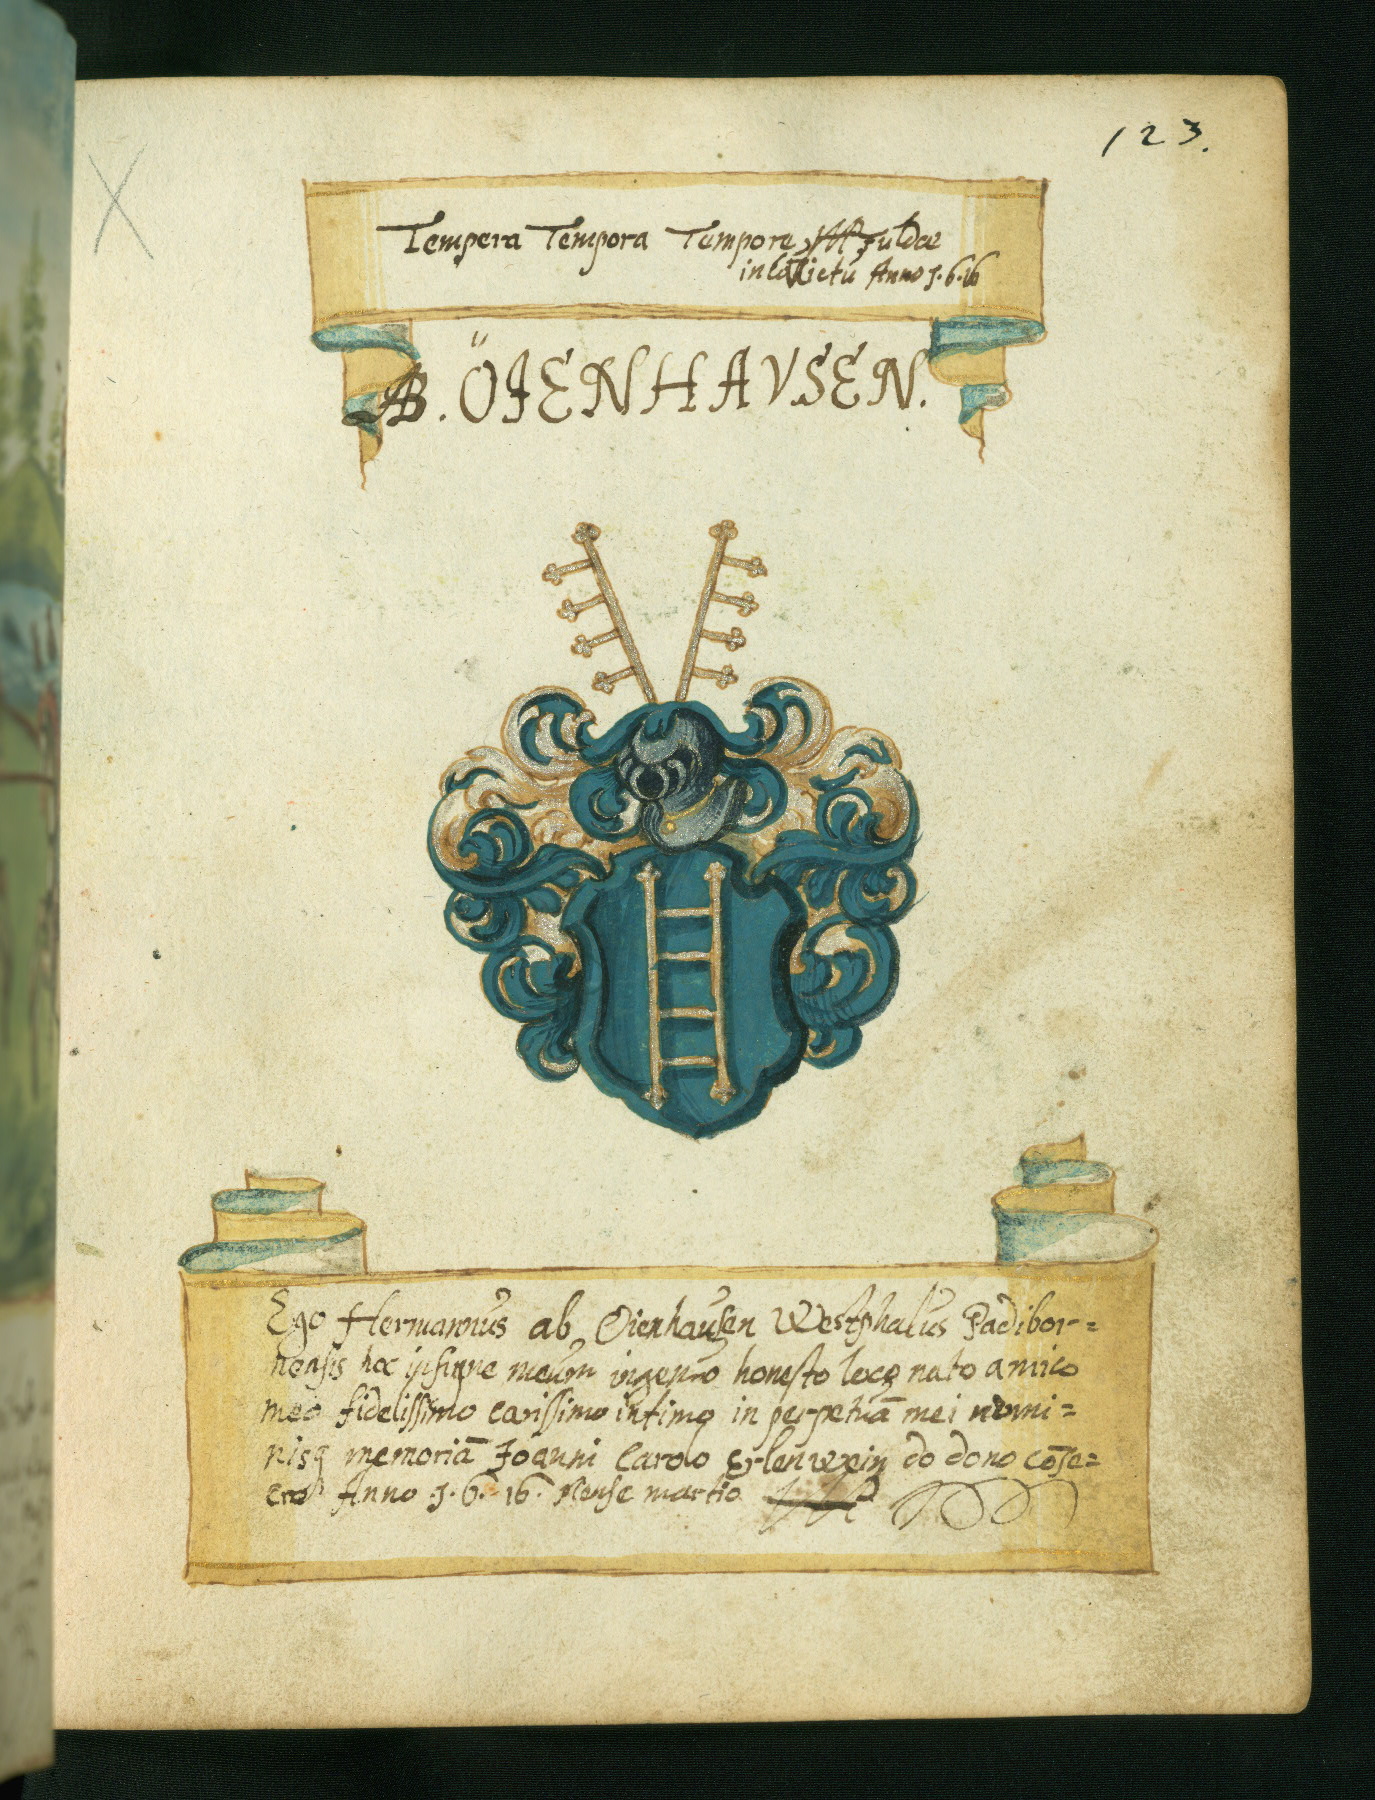 123.
Tempera Tempora Tempore Fuldae
Anno 1·6·16
AB. ÖIENHAVSEN.
Ego Hermannus ab Oienhausen Westphalus Padibor=
nensis hoc ipsuṁe meum ingenuo honesto locq nato amico
meo fidelissimo carissimo intimo in perpetuā mei nomi=
nisq memoriā Joanni Carolo Erlenwein do dono cōse=
cro Anno 1·6·16· Mense martio